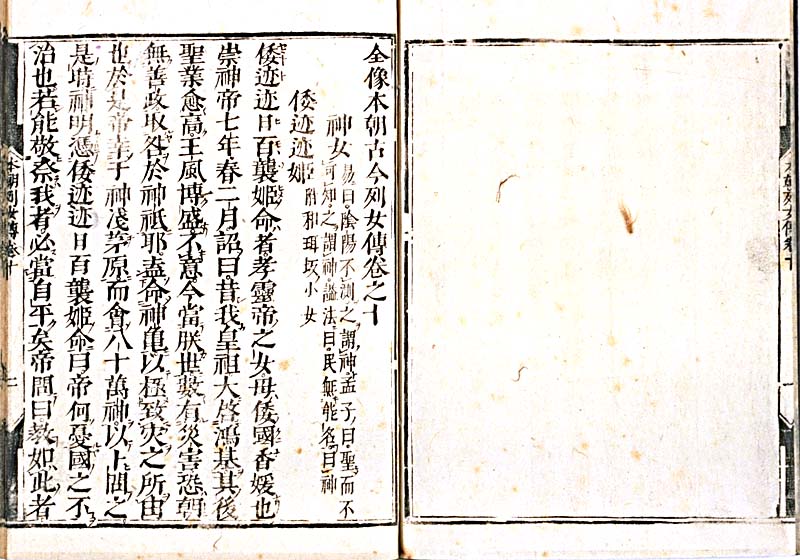 本朝列女傳卷十
全像本朝古今列女傳卷之十
神女
易曰陰陽不測之謂神孟子曰聖而不
可知之謂神謚法曰民無能名曰神
倭迹迹姬
附和珥坂小女
倭迹迹日百襲姬命者孝靈帝之女母倭國香媛也
崇神帝七年春二月詔曰昔我皇祖大啓鴻基其後
聖業愈高王風博盛不意今當朕世數有災害恐朝
無善政取咎於神祇耶盍命神亀以極致災之所由
也於是帝幸于神淺茅原而會八十萬神以卜問之
是時神明憑倭迹迹日百襲姬命曰帝何憂國之不
治也若能敬祭我者必當自平矣帝問曰教如此者
本朝列女傳卷十
一